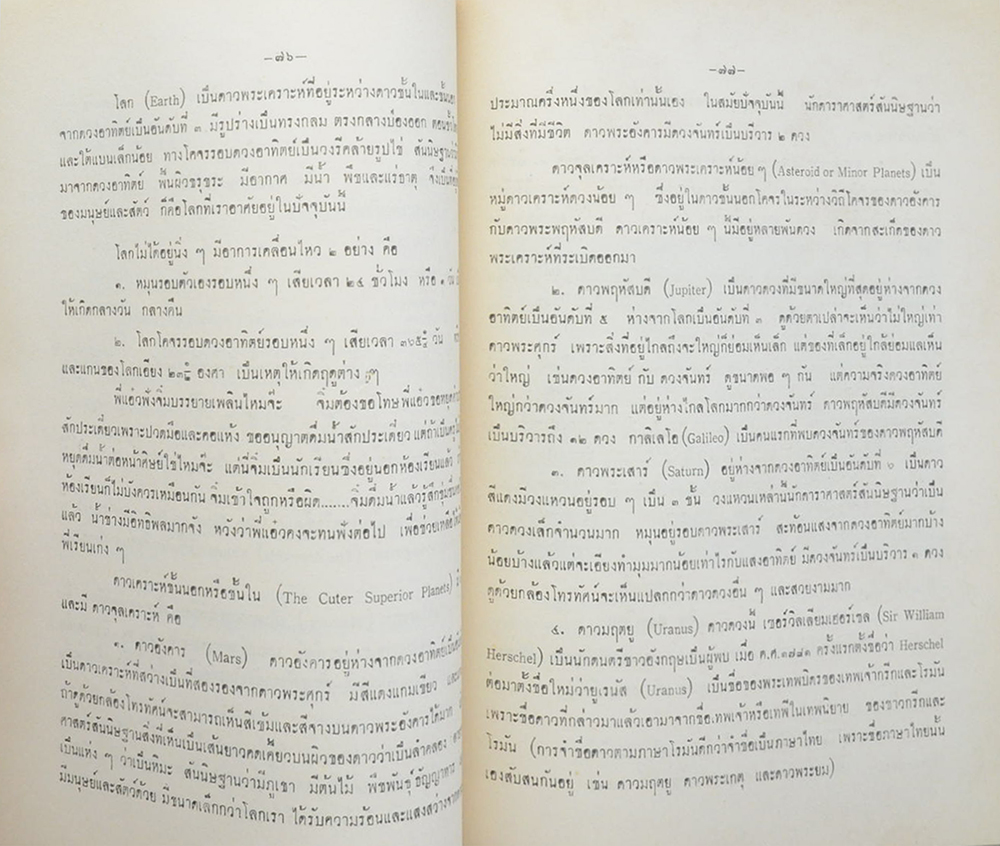 —๗๖—
โลก (Earth) เป็นดาวพระเคราะห์ที่อยู่ระหว่างดาวชั้นในและชั้นนอก
จากดวงอาทิตย์เป็นอันดับที่ ๓ มีรูปร่างเป็นทรงกลม ตรงกลางป่องออก ตอนขั้ว
และใต้แบนเล็กน้อย ทางโคจรรอบดวงอาทิตย์เป็นวงรีคล้ายรูปไข่ สันนิษฐานว่า
มาจากดวงอาทิตย์ พื้นผิวขรุขระ มีอากาศ มีน้ำ พืชและแร่ธาตุ จึงเป็นที่
ของมนุษย์และสัตว์ ก็คือโลกที่เราอาศัยอยู่ในปัจจุบันนี้
โลกไม่ได้อยู่นิ่ง ๆ มีอาการเคลื่อนไหว ๒ อย่าง คือ
๑. หมุนรอบตัวเองรอบหนึ่ง ๆ เสียเวลา ๒๔ ชั่วโมง หรือ ๑ วัน
ให้เกิดกลางวัน กลางคืน
๒. โลกโคจรรอบดวงอาทิตย์รอบหนึ่ง ๆ เสียเวลา ๓๖๕ ๑/๔ วัน
และแกนของโลกเอียง ๒๓ ๑/๒ องศา เป็นเหตุให้เกิดฤดูต่าง ๆ
พี่แอ๋วฟังจิ๋มบรรยายเพลินไหมจ๊ะ จิ๋มต้องขอโทษพี่แอ๋วขอหยุด
สักประเดี๋ยวเพราะปวดมือและคอแห้ง ขออนุญาตดื่มน้ำสักประเดี๋ยว แต่ถ้าเป็นครู
หยุดดื่มน้ำต่อหน้าศิษย์ใช่ไหมจ๊ะ แต่นี่จิ๋มเป็นนักเรียนซึ่งอยู่นอกห้องเรียนแล้ว
ห้องเรียนก็ไม่บังควรเหมือนกัน จิ๋มเข้าใจถูกหรือผิด.......จิ๋มดื่มน้ำแล้วรู้สึกชุ่มชื่น
แล้ว น้ำช่างมีอิทธิพลมากจัง หวังว่าพี่แอ๋วคงจะทนฟังต่อไป เพื่อช่วย
พี่เรียนเก่ง ๆ
ดาวเคราะห์ชั้นนอกหรือชั้นใน (The Cuter Superior Planets)
และมี ดาวจุลเคราะห์ คือ
๑. ดาวอังคาร (Mars) ดาวอังคารอยู่ห่างจากดวงอาทิตย์เป็น
เป็นดาวเคราะห์ที่สว่างเป็นที่สองรองจากดาวพระศุกร์ มีสีแดงแกมเขียว
ถ้าดูด้วยกล้องโทรทัศน์จะสามารถเห็นสีเข้มและสีจางบนดาวพระอังคารได้มาก
ศาสตร์สันนิษฐานสิ่งที่เห็นเป็นเส้นยาวคดเคี้ยวบนผิวของดาวว่าเป็นลำคลอง
เป็นแห่ง ๆ ว่าเป็นหิมะ สันนิษฐานว่ามีภูเขา มีต้นไม้ พืชพันธุ์ธัญญาหาร
มีมนุษย์และสัตว์ด้วย มีขนาดเล็กกว่าโลกเรา ได้รับความร้อนและแสงสว่างจาก
—๗๗—
ประมาณครึ่งหนึ่งของโลกเท่านั้นเอง ในสมัยปัจจุบันนี้ นักดาราศาสตร์สันนิษฐานว่า
ไม่มีสิ่งที่มีชีวิต ดาวพระอังคารมีดวงจันทร์เป็นบริวาร ๒ ดวง
ดาวจุลเคราะห์หรือดาวพระเคราะห์น้อย ๆ (Asteroid or Minor Planets) เป็น
หมู่ดาวเคราะห์ดวงน้อย ๆ ซึ่งอยู่ในดาวชั้นนอกโคจรในระหว่างวิถีโคจรของดาวอังคาร
กับดาวพระพฤหัสบดี ดาวเคราะห์น้อย ๆ นี้มีอยู่หลายพันดวง เกิดจากสะเก็ดของดาว
พระเคราะห์ที่ระเบิดออกมา
๒. ดาวพฤหัสบดี (Jupiter) เป็นดาวดวงที่มีขนาดใหญ่ที่สุดอยู่ห่างจากดวง
อาทิตย์เป็นอันดับที่ ๕ ห่างจากโลกเป็นอันดับที่ ๓ ดูด้วยตาเปล่าจะเห็นว่าไม่ใหญ่เท่า
ดาวพระศุกร์ เพราะสิ่งที่อยู่ไกลถึงจะใหญ่ก็ย่อมเห็นเล็ก แต่ของที่เล็กอยู่ใกล้ย่อมแลเห็น
ว่าใหญ่ เช่นดวงอาทิตย์ กับ ดวงจันทร์ ดูขนาดพอ ๆ กัน แต่ความจริงดวงอาทิตย์
ใหญ่กว่าดวงจันทร์มาก แต่อยู่ห่างไกลโลกมากกว่าดวงจันทร์ ดาวพฤหัสบดีมีดวงจันทร์
เป็นบริวารถึง ๑๒ ดวง กาลิเลโอ (Galileo) เป็นคนแรกที่พบดวงจันทร์ของดาวพฤหัสบดี
๓. ดาวพระเสาร์ (Saturn) อยู่ห่างจากดวงอาทิตย์เป็นอันดับที่ ๖ เป็นดาว
สีแดงมีวงแหวนอยู่รอบ ๆ เป็น ๓ ชั้น วงแหวนเหล่านั้นักดาราศาสตร์สันนิษฐานว่าเป็น
ดาวดวงเล็กจำนวนมาก หมุนอยู่รอบดาวพระเสาร์ สะท้อนแสงจากดวงอาทิตย์มากบ้าง
น้อยบ้างแล้วแต่จะเอียงทำมุมมากน้อยเท่าไรกับแสงอาทิตย์ มีดวงจันทร์เป็นบริวาร ๑ ดวง
ดูด้วยกล้องโทรทัศน์จะเห็นแปลกกว่าดาวดวงอื่น ๆ และสวยงามมาก
๔. ดาวมฤตยู (Uranus) ดาวดวงนี้ เซอร์วิลเลียมเฮอร์เชล (Sir William
Herschel) เป็นนักดนตรีชาวอังกฤษเป็นผู้พบ เมื่อ ค.ศ.๑๗๘๑ ครั้งแรกตั้งชื่อว่า Herschel
ต่อมาตั้งชื่อใหม่ว่ายูเรนัส (Uranus) เป็นชื่อของพระเทพบิดรของเทพเจ้ากรีกและโรมัน
เพราะชื่อดาวที่กล่าวมาแล้วเอามาจากชื่อเทพเจ้าหรือเทพีในเทพนิยาย ของชาวกรีกและ
โรมัน (การจำชื่อดาวตามภาษาโรมันดีกว่าจำชื่อเป็นภาษาไทย เพราะชื่อภาษาไทยนั้น
เองสับสนกันอยู่ เช่น ดาวมฤตยู ดาวพระเกตุ และดาวพระยม)